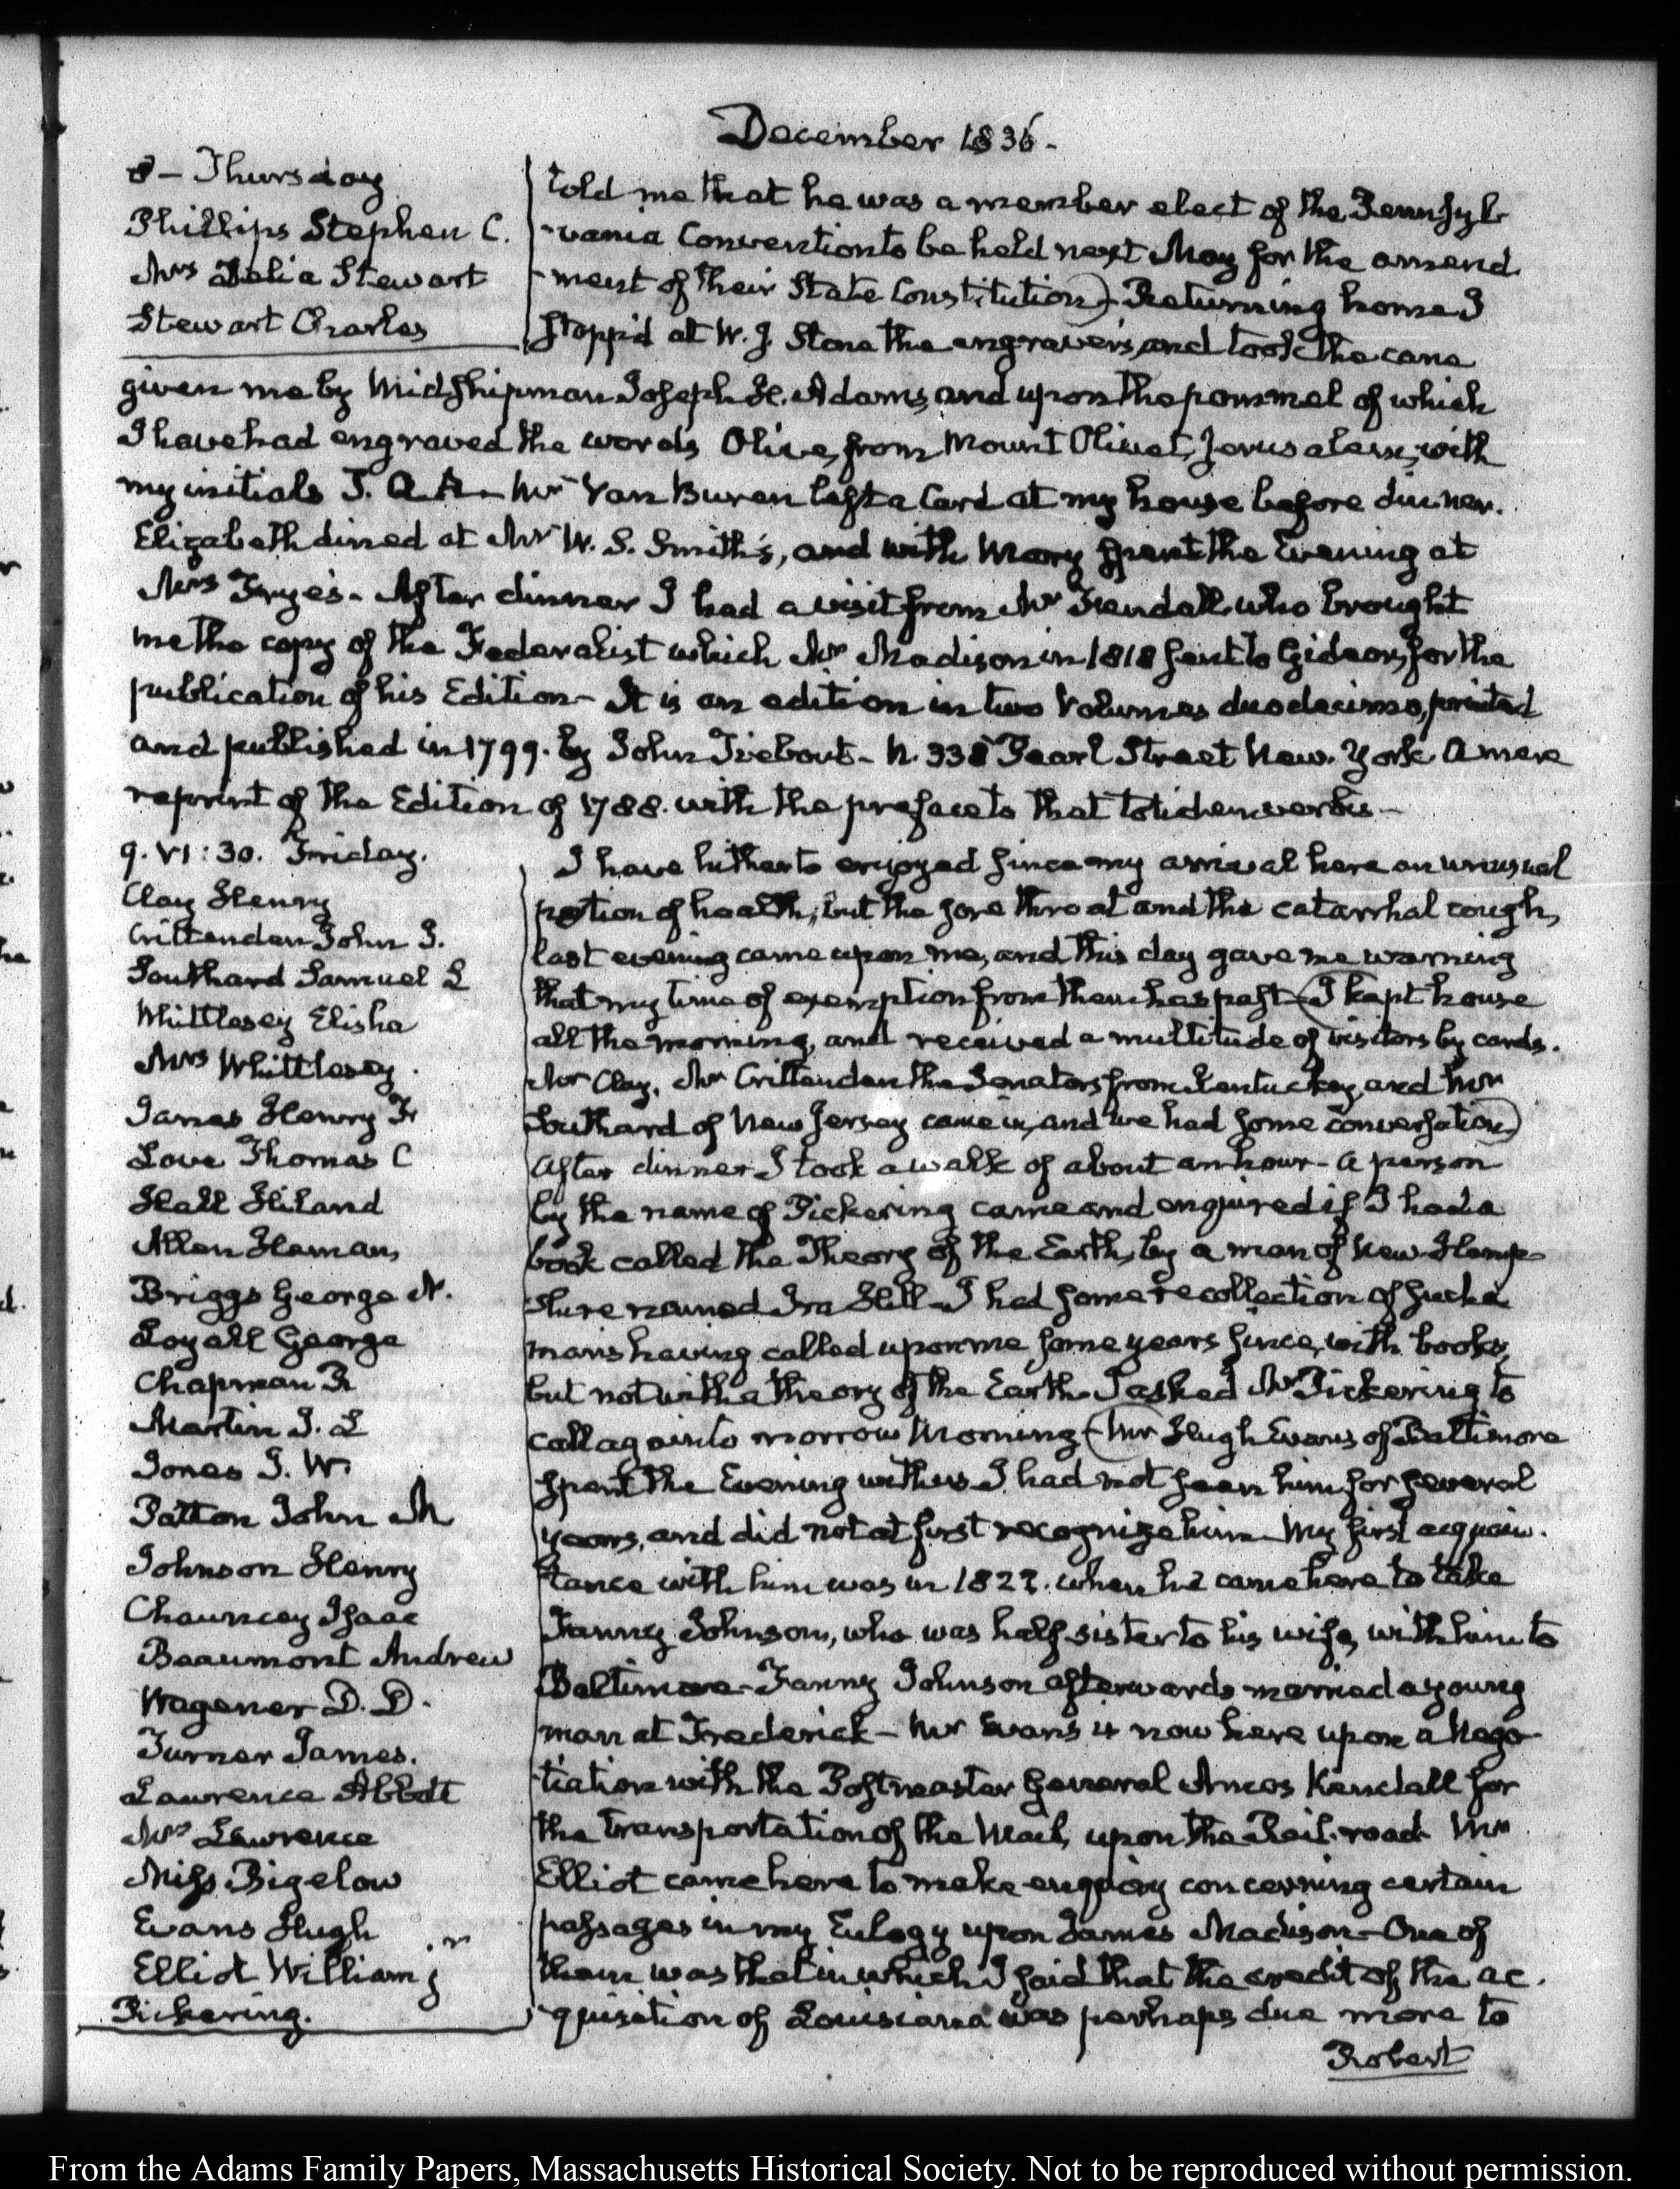 December 1836.
8 – Thursday
Phillips Stephen C.
Mrs Delia Stewart
Stewart Charles
told me that he was a member elect of the Pennsyl-
-vania Convention to be held next May for the amend
-ment of their State Constitution) – Returning home I
stopp'd at W. J. Stone the engraver's, and took the cane
given me by Midshipman Joseph H. Adams, and upon the pommel of which
I have had engraved the words Olive, from Mount Olivet, Jerusalem, with
my initials J. Q. A. – Mr Van Buren left a Card at my house before dinner.
Elizabeth dined at Mr W. S. Smith's, and with Mary spent the Evening at
Mrs Frye's – After dinner I had a visit from Mr Trendall, who brought
me the copy of the Federalist which Mr Madison in 1818 sent to Gideon, for the
publication of his Edition – It is an edition in two Volumes duodecimo, printed
and published in 1799. by John Tiebout – N. 358 Pearl Street New-York. A mere
reprint of the Edition of 1788. with the preface to that totidem verbis –
9. VI:30. Friday.
Clay Henry
Crittenden John J.
Southard Samuel L
Whittlesey Elisha
Mrs Whittlesey.
Janes Henry F.
Love Thomas C
Hall Hiland
Allen Heman,
Briggs George N.
Loyall George
Chapman R
Martin J. L
Jones J. W.
Patton John M
Johnson Henry
Chauncey Isaac
Beaumont Andrew
Wagener D. D.
Turner James.
Lawrence Abbott
Mrs Lawrence
Miss Bigelow
Evans Hugh
Elliot William jr
Pickering.
I have hitherto enjoyed since my arrival here an unusual
portion of health, but the sore throat and the catarrhal cough,
last evening came upon me, and this day gave me warning
that my time of exemption from them has past – (I kept house
all the morning, and received a multitude of visitors by cards.
Mr Clay, Mr Crittenden the Senators from Kentuckey, and Mr
Southard of New Jersey came in, and we had some conversation)
After dinner I took a walk of about an hour – A person
by the name of Pickering came and enquired if I had a
book called the Theory of the Earth, by a man of New-Hamp-
shire named Ira Hill – I had some recollection of such a
man's having called upon me some years since, with books,
but not with a theory of the Earth – I asked Mr Pickering to
call again to morrow Morning – (Mr Hugh Evans of Baltimore
spent the Evening with us. I had not seen him for several
years, and did not at first recognize him – My first acquain-
tance with him was in 1822. when he came here to take
Fanney Johnson, who was half sister to his wife, with him to
Baltimore – Fanny Johnson afterwards married a young
man at Frederick – Mr Evans is now here upon a Nego-
-tiation with the Postmaster General Amos Kendall for
the transportation of the Mail, upon the Rail-road – Mr
Elliot came here to make enquiry concerning certain
passages in my Eulogy upon James Madison – One of
them was that in which I said that the credit of the ac-
-quisition of Louisiana was perhaps due more to
Robert
From the Adams Family Papers, Massachusetts Historical Society. Not to be reproduced without permission.